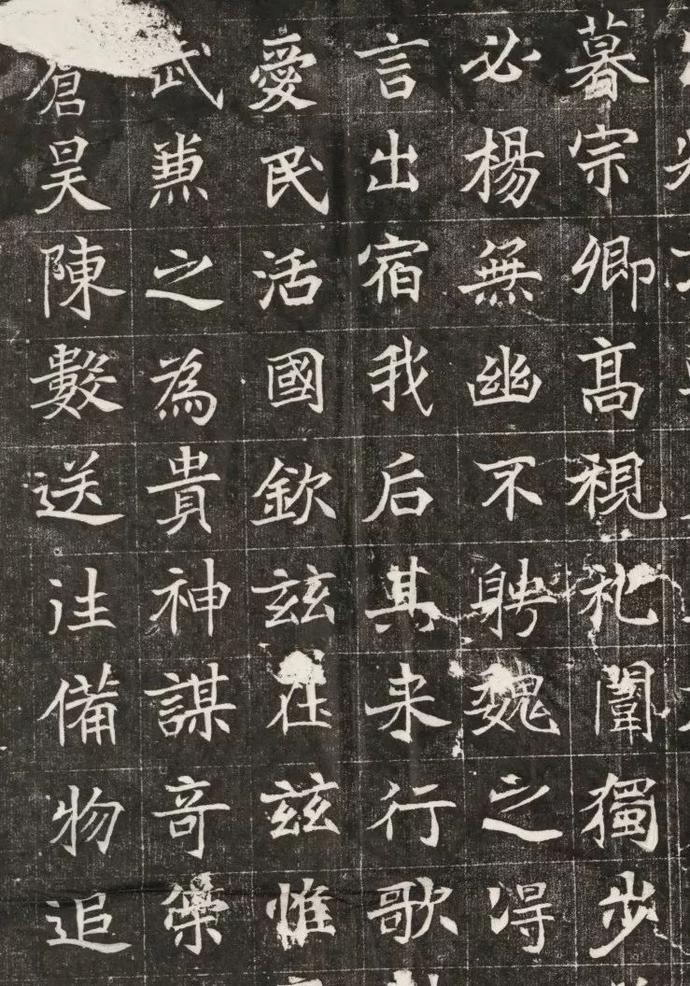 暮宗卿高視礼闈獨步
必楊無幽不聘魏之淂
言出宿我后其来行歌
愛民活國欽茲在茲惟
武兼之為貴神謀奇策
倉昊陳數送往備物追